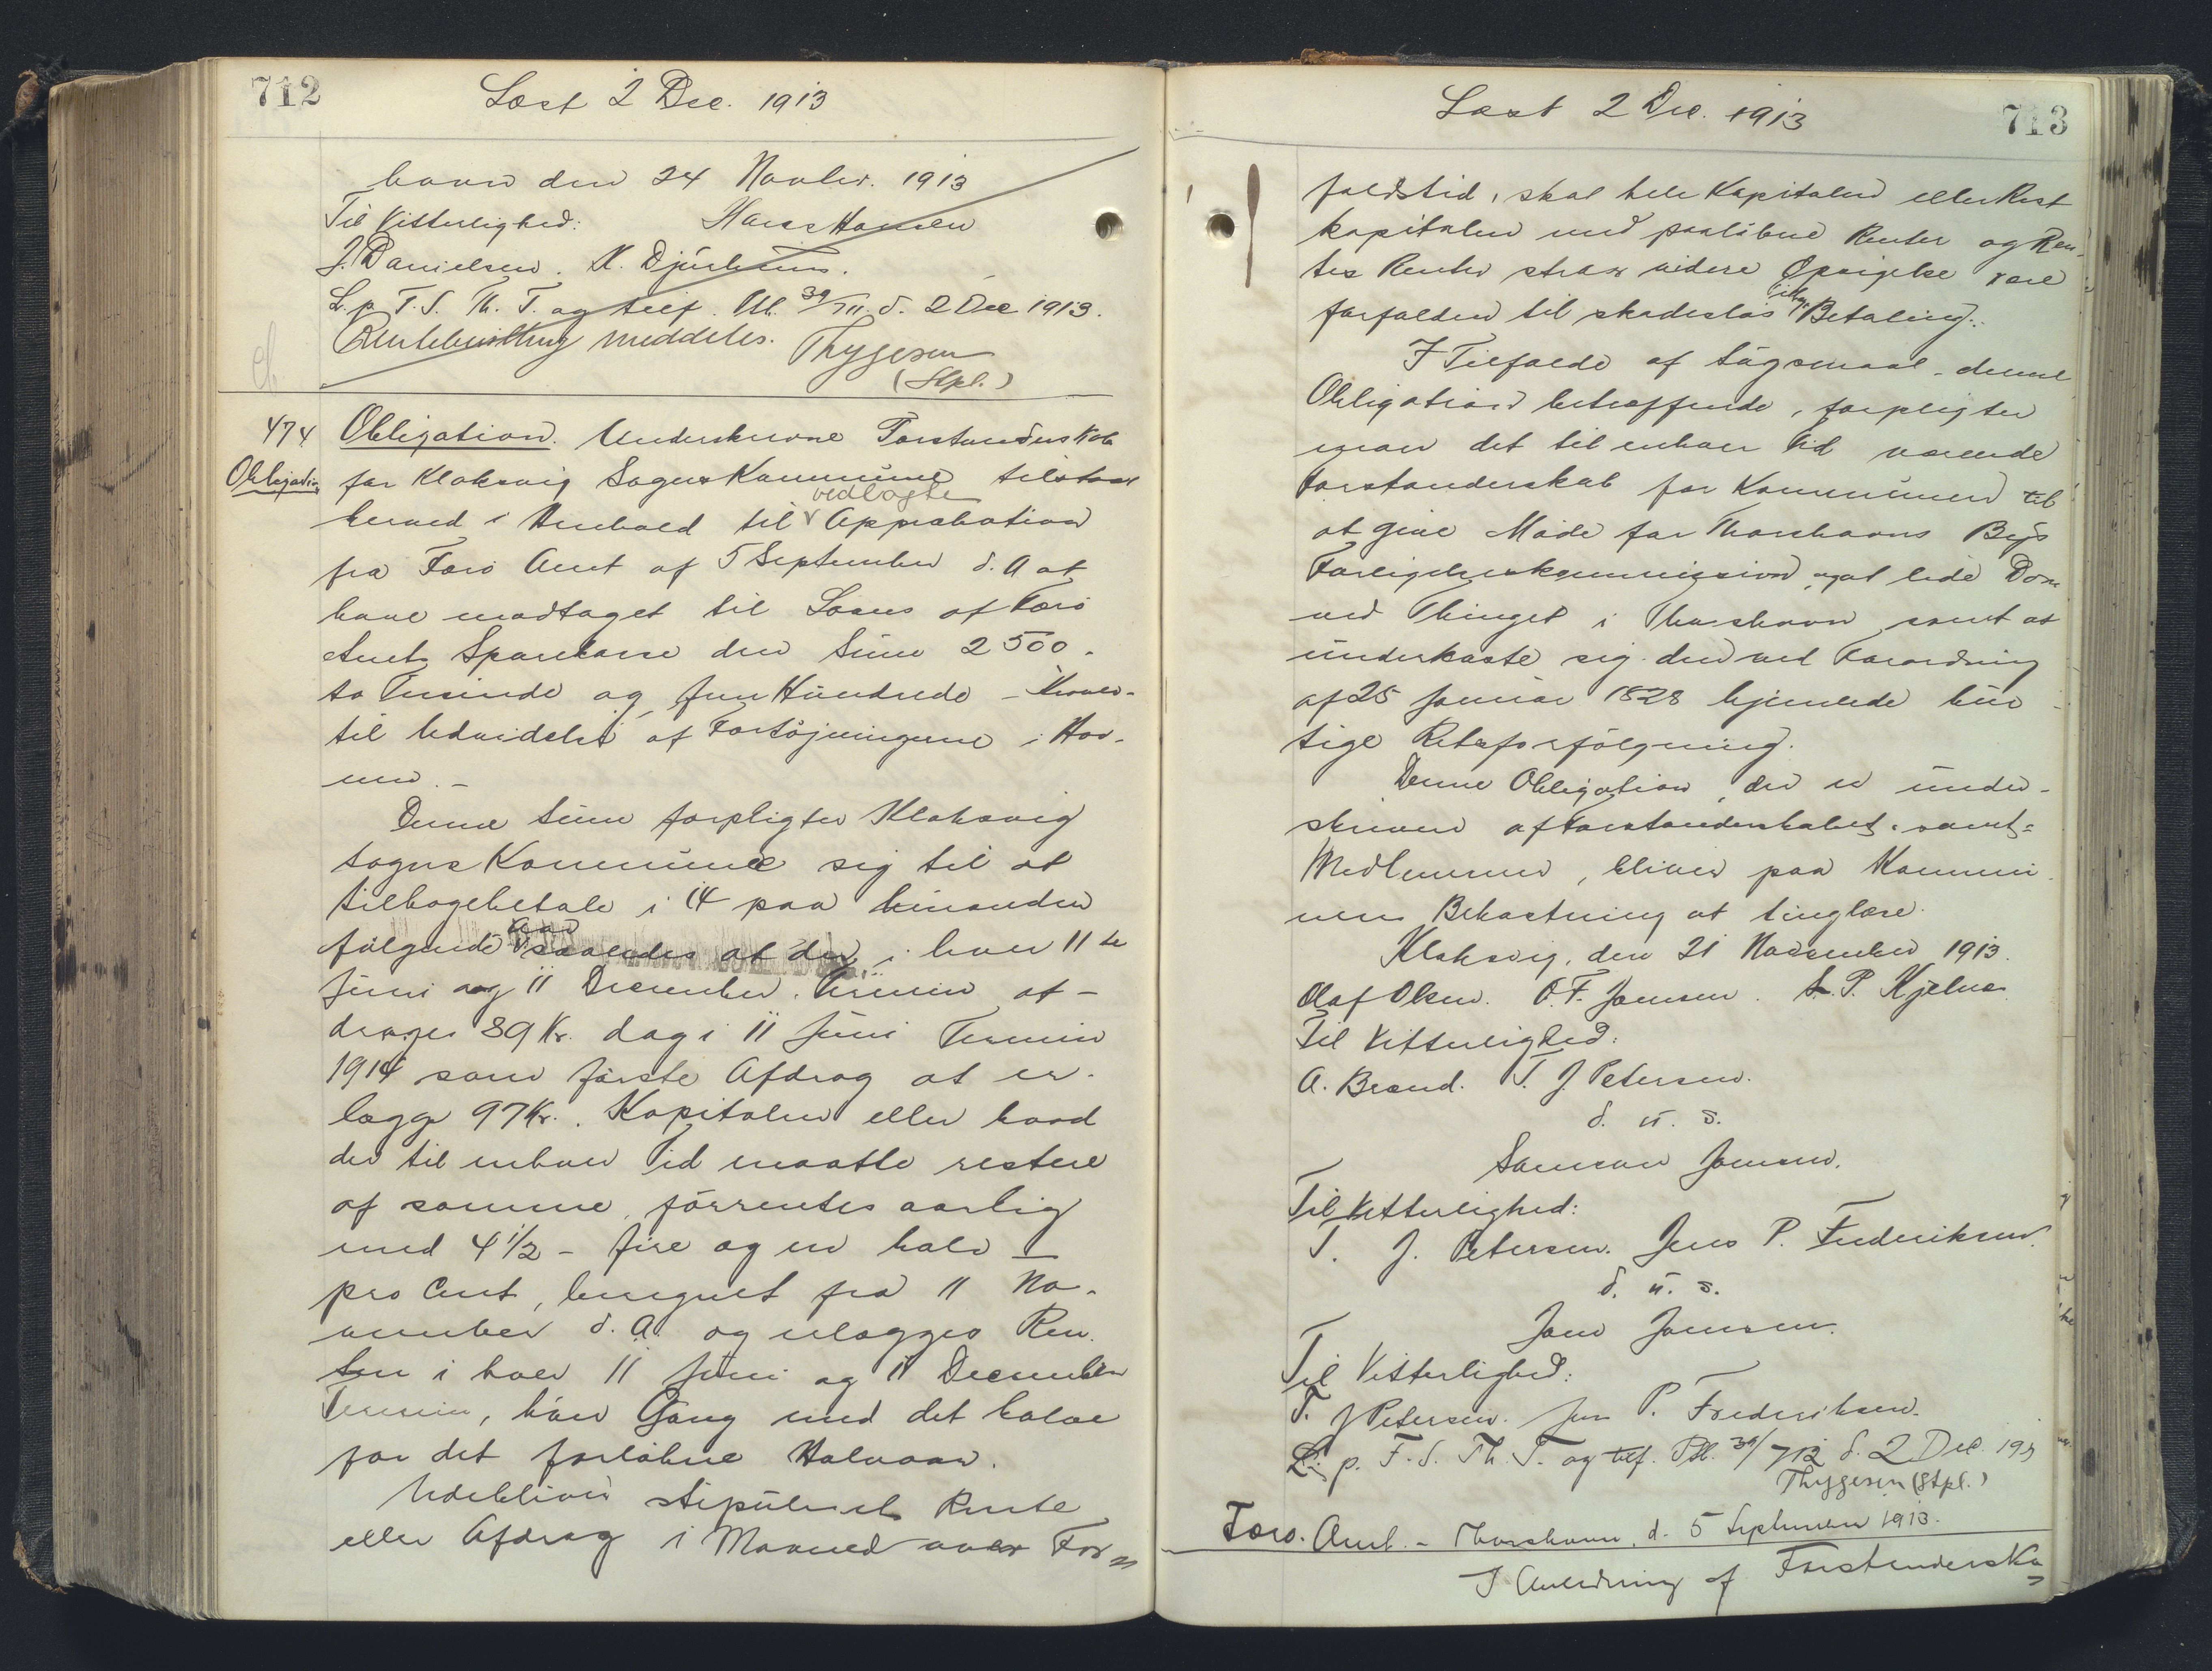 712
Læst 2 Dec. 1913
havn den 24 Novbr. 1913
Til Vitterlighed: Hans Hansen
J. Danielsen. K. Djurhuus.
L. p. F. S. Th. T. og tilf. Pbl. d. 2 Dec 1913.
meddeles. Thygesen
(Stpl.)
474
Obligation
Obligation. Underskrevne Forstanderskab
for Klaksvig Sogns Kommune tilstaar
herved i Henhold til vedlagte Approbation
fra Færø Amt af 5 September d. A at
have modtaget til Laans af Færø
Amts Sparekasse den Sum 2500.
to Tusinde og fem Hundrede – Kroner –
til Udvidelse af Fortøjningerne i Hav-
nen. –
Denne Sum forpligter Klaksvig
Sogns Kommune sig til at
tilbagebetale i 14 paa hinanden
følgende Aar saaledes at der i hver 11te
Juni og 11 December Termin af-
drages 89 Kr. dog i 11 Juni Termin
1914 som første Afdrag at er-
lægge 97 Kr. Kapitalen eller hvad
der til enhver Tid maatte restere
af samme, forrentes aarlig
med 4 1/2 – fire og en halv –
pro Cent, beregnet fra 11 No-
vember d. A. og erlægges Ren-
ten i hver 11 Juni og 11 December
Termin, hver Gang med det halve
for det forløbne Halvaar.
Udebliver stipuleret Rente
eller Afdrag 1 Maaned over For=
713
Læst 2 Dec. 1913
faldstid, skal hele Kapitalen eller Rest
kapitalen med paaløbne Renter og Ren-
tes Renter strax uden Opsigelse være
forfalden til skadesløs Betaling.
I Tilfælde af Søgsmaal – denne
Obligation betræffende, forpligter
man det til enhver Tid værende
Forstanderskab for Kommunen til
at give Møde for Thorshavns Bys
Forligelseskommission, og at lide Dom
ved Thinget i Thorshavn, samt at
underkaste sig den ved Forordning
af 25 Januar 1828 hjemlede hur-
tige Retsforfølgning.
Denne Obligation, der er under-
skreven af Forstanderskabets samt=
Medlemmer, bliver paa Kommu-
nens Bekostning at tinglæse.
Klaksvig, den 21 November 1913.
Olaf Olsen. O. F. Joensen. S. P. Kjølnes
Til Vitterlighed:
A. Brend. T. J. Petersen.
d. u. s.
Samson Joensen.
Til Vitterlighed:
T. J. Petersen. Jens P. Frederiksen.
d. u. s.
Joen Joensen.
Til Vitterlighed:
T. J Petersen. Jens P. Frederiksen.
L. p. F. S. Th. T. og tilf. Pbl. 39/712 d. 2 Dec. 1913
Thygesen (Stpl.)
Færø. Amt. – Thorshavn, d. 5 September 1913.
I Anledning af Forstanderska=